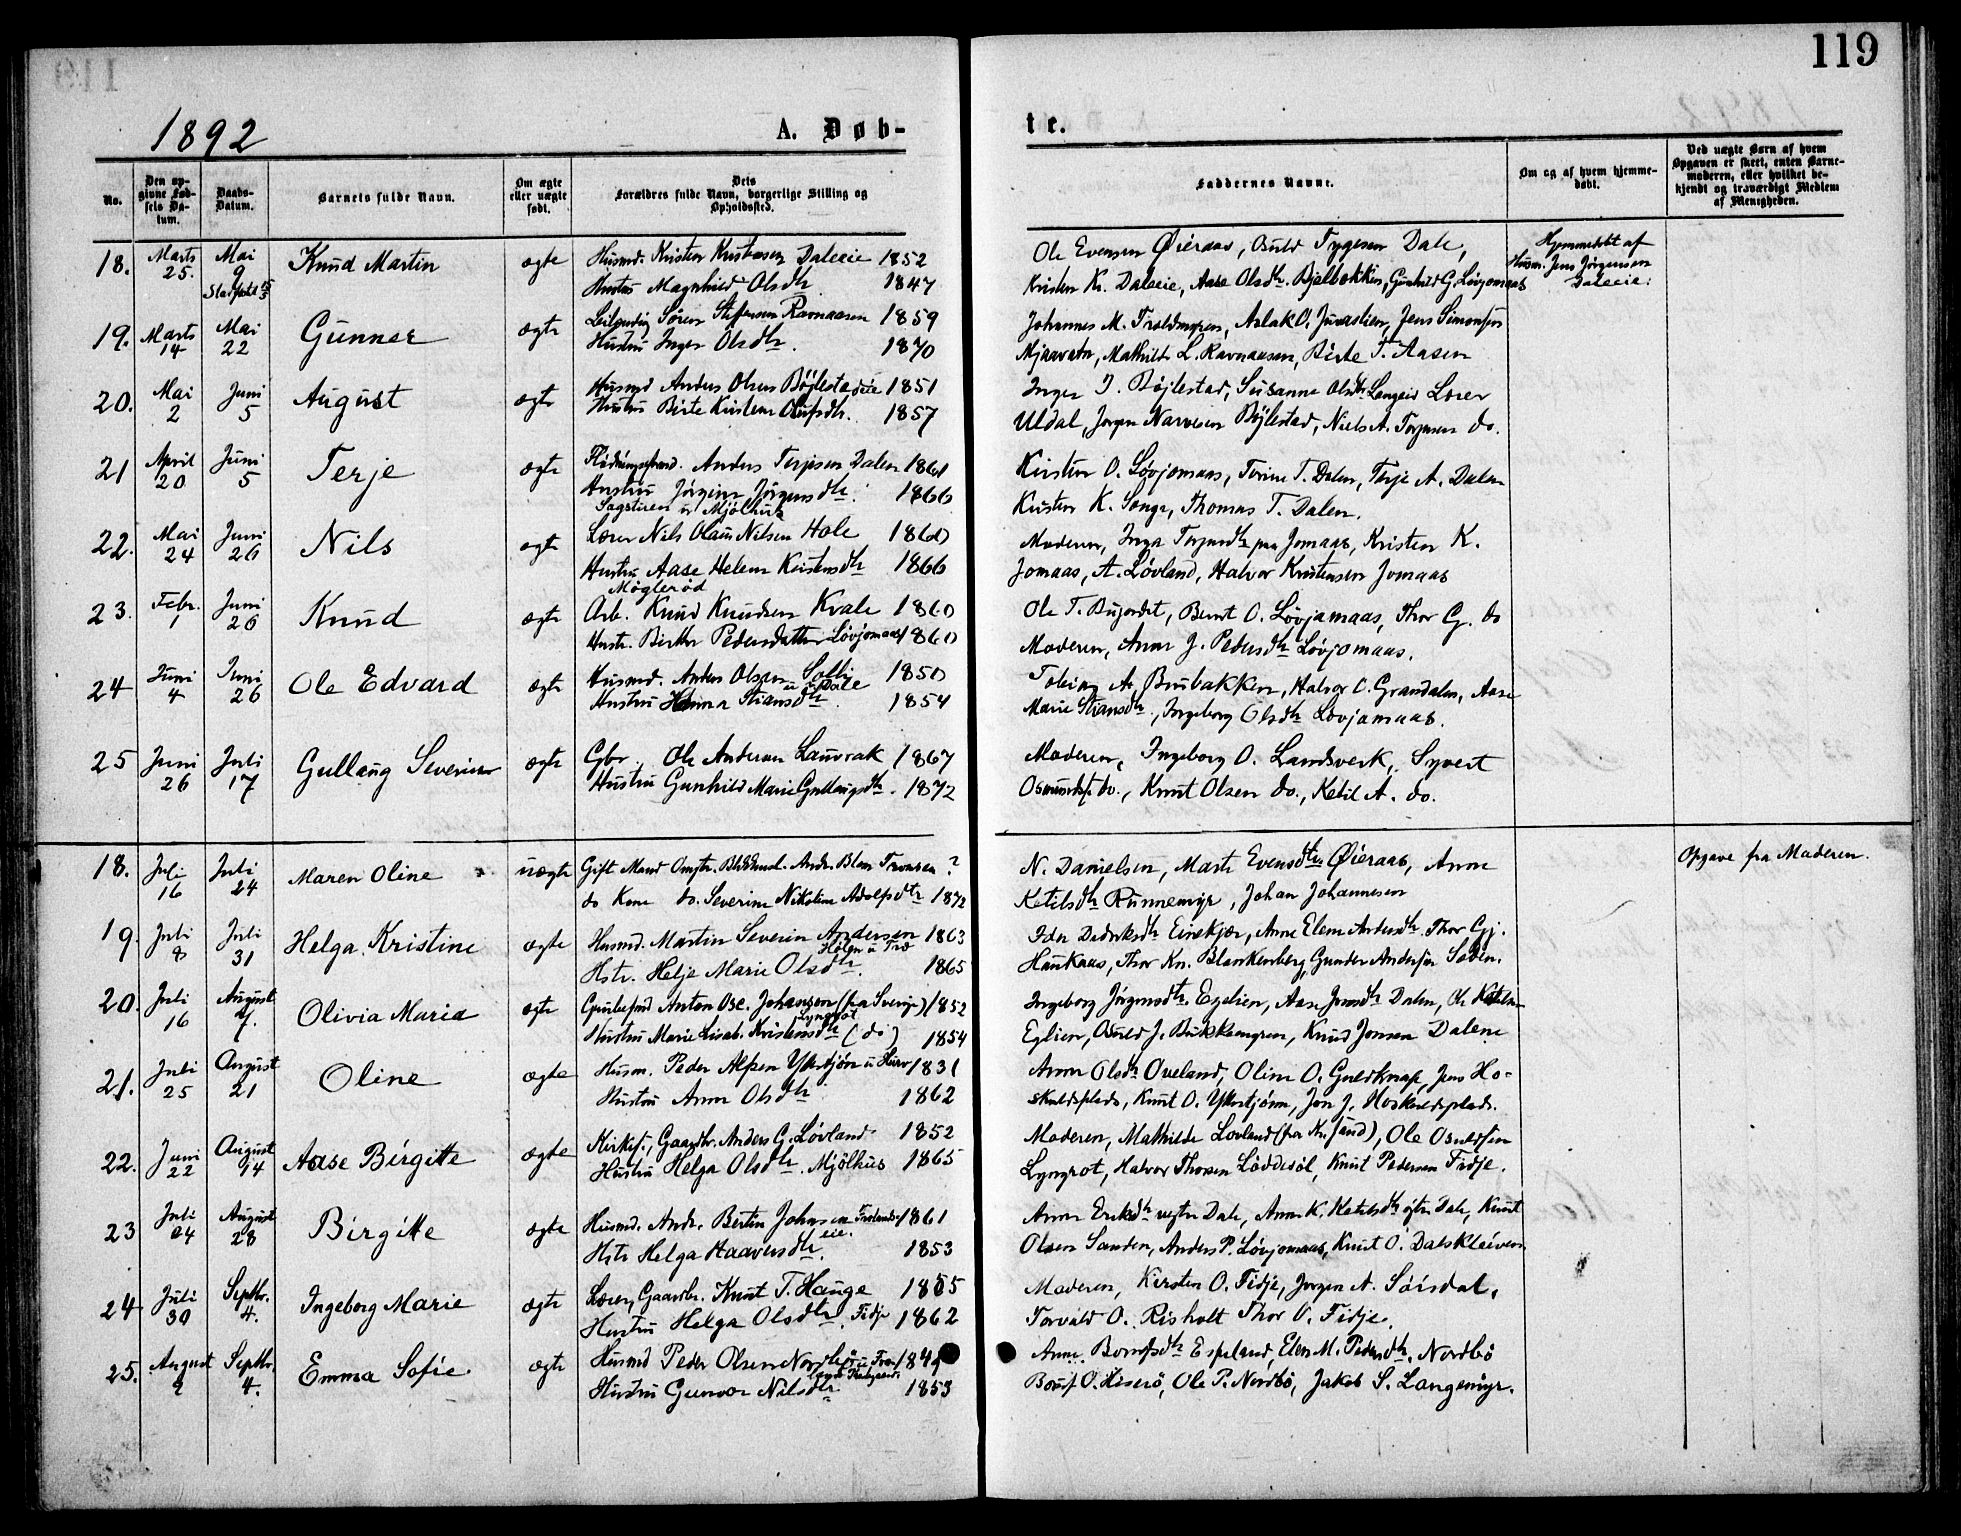 119
1892
A. Døb-
te.
No.
Den op-
givne Fød-
sels Da-
tum.
Daabs-
Datum.
Barnets fulde Navn.
Om ægte
eller uægte
født.
Dets
Forældres fulde Navn, borgerlige Stilling og
Opholdssted.
Faddernes Navne.
Om og af hvem hjemme-
døbt.
Ved uægte Børn af hvem
Opgaven er skeet, enten Barne-
moderen, eller hvilket be-
kjendt og troværdigt Medlem
af Menigheden.
18. Marts 25. Mai 9 Knud Martin ægte Husmd. Kristen Daleeie 1852
Hustru Magnhild Olsdtr 1847
Ole Evensen Øieraas, Osuld Tygesen Dale,
Kristen Kr. Daleeie, Aase Olsdtr. Bjelbækken, Gunhild G. Løvjomaas
Hjemmedøbt af
Husm. Jens Jørgensen
Daleeie.
19. Marts 14 Mai 22 Gunner ægte Leilending Søren Ravnaasen 1859
Hustru Inger Olsdtr. 1870
Johannes M. Troldmyren, Aslak O. Jens Simonsen
Mjaavatn, Mathilde L. Ravnaasen, Birte T. Aasen
20. Mai 2 Juni 5 August ægte Husmd Anders Olsen Bøjlestadeie 1851
Hustru Birte Kirstene 1857
Inger J. Bøjlestad, Susanne Olsdtr Langeid Lærer
Uldal, Jørgen Narvesen Bøjlestad, Niels A. Torjusen do.
21 April 20 Juni 5 Terje ægte Anders Terjesen Dalen 1861
Hustru Jørgine Jørgensdtr. 1866
Kirsten O. Løvjomaas, Torine T. Dalen, Terje A. Dalen
Kristen K. Songe, Thomas T. Dalen.
22. Mai 24 Juni 26 Nils ægte Lærer Nils Olaus Nilsen Hole 1860
Hustru Aase Helene Kristensdtr 1866
Møglerød
Moderen, Inga fra Jomaas, Kristen K.
Jomaas, A. Løvland, Halvor Kristensen Jomaas
23. Febr. 1 Juni 26 Knud ægte Arb. Knud Knudsen Kvale 1860
Hustr. Birthe Pedersdatter Løvjomaas 1860
Ole T. Bernt O. Løvjamaas, Thor G. do
Moderen, Anne J. Pedersdtr Løvjomaas.
24 Juni 4 Juni 26 Ole Edvard ægte Husmd. Anders Olsen Solli 1850
u. Dale
Hustru Hanna Stiansdtr. 1854
Tobias A. Brubakken, Halvor O. Grandalen, Aase
Marie Stiansdtr., Ingeborg Olsdtr Løvjamaas.
25 Juni 26 Juli 17 Gullaug Severine ægte Gbr. Ole Andersen Lauvrak 1867
Hustru Gunhild Marie Gullaugsdtr. 1872
Moderen, Ingeborg O. Landsverk, Syvert
Osmundsen do., Knut Olsen do., Ketil A. do.
18. Juli 16 Juli 24 Maren Oline uægte Gift Mand Andr. Blom Tronsen ?
do Kone do. Severine Nikoline Adolfsdtr 1872
N. Danielsen, Marte Evensdtr Øieraas, Anne
Ketilsdtr Runnemyr, Johan Johannesen
Opgave fra Moderen.
19. Juli 8 Juli 31 Helga Kristine ægte Husmd. Martin Severin Andersen 1863
Hølen u. Træ
Hstr. Helje Marie Olsdtr. 1865
Ider Didriksdtr Einskjær, Anne Elene Andersdtr, Thor Gj.
Haukaas, Thor Kn. Blankenberg, Gunder Andersen
20. Juli 16 August 7. Olivia Maria ægte Anton Osc. Johansen (fra Sverige) 1852
Lyngrot
Hustru Marie Lisab. Kristensdtr (do) 1854
Ingeborg Jørgensdtr. Egelien, Aase Jensdtr Dalen, Ole
Eglien, Osuld J. Bukkemyren, Knud Jensen Dalene
21. Juli 25 August 21 Oline ægte Husm. Peder Alfsen Yttertjøn u Hurv 1831
Hustru Anne Olsdtr 1862
Anne Olsdtr Oveland, Oline O. Guldknap, Jens Ho-
skuldsplads, Knut O. Yttertjønn, Jon J. Hoskuldsplads.
22. Juni 22 August 14 Aase Birgitte ægte Kirkes., Gaardbr. Anders G. Løvland 1852
Hustru Helga Olsdtr. Mjølhus 1865
Moderen, Mathilde Løvland (fra Kr.sand), Ole Osuldsen
Lyngrot, Halvor Thorsen Løddesøl, Knut Pedersen Fidje.
23 Juli 24 August 28 Birgitte ægte Husmd. Andr. Bertin Johnsen 1861
eie.
Hstr Helga Haaversdtr. 1853
Anne Eriksdtr Dale, Anne K. Ketilsdtr Dale, Knut
Olsen Sanden, Anders P. Løvjomaas, Knut O. Dalskleiven.
24 Juli 30 Septbr. 4. Ingeborg Marie ægte Lærer, Gaardbr. Knut T. Hauge 1865
Hustru Helga Olsdtr. Fidje 1862
Moderen, Kirsten O. Fidje, Jørgen A. Søisdal,
Torvald O. Risholt Thor O. Fidje.
25. August 2 Septbr. 4. Emma Sofie ægte Husmd Peder Olsen Nordbø 1849
Hustru Gunvor Nilsdtr 1853
Anne Espeland, Elen M. Pedersdtr. Nordbø
O. Hiserø, Ole P. Nordbø, Jakob S. Langemyr.